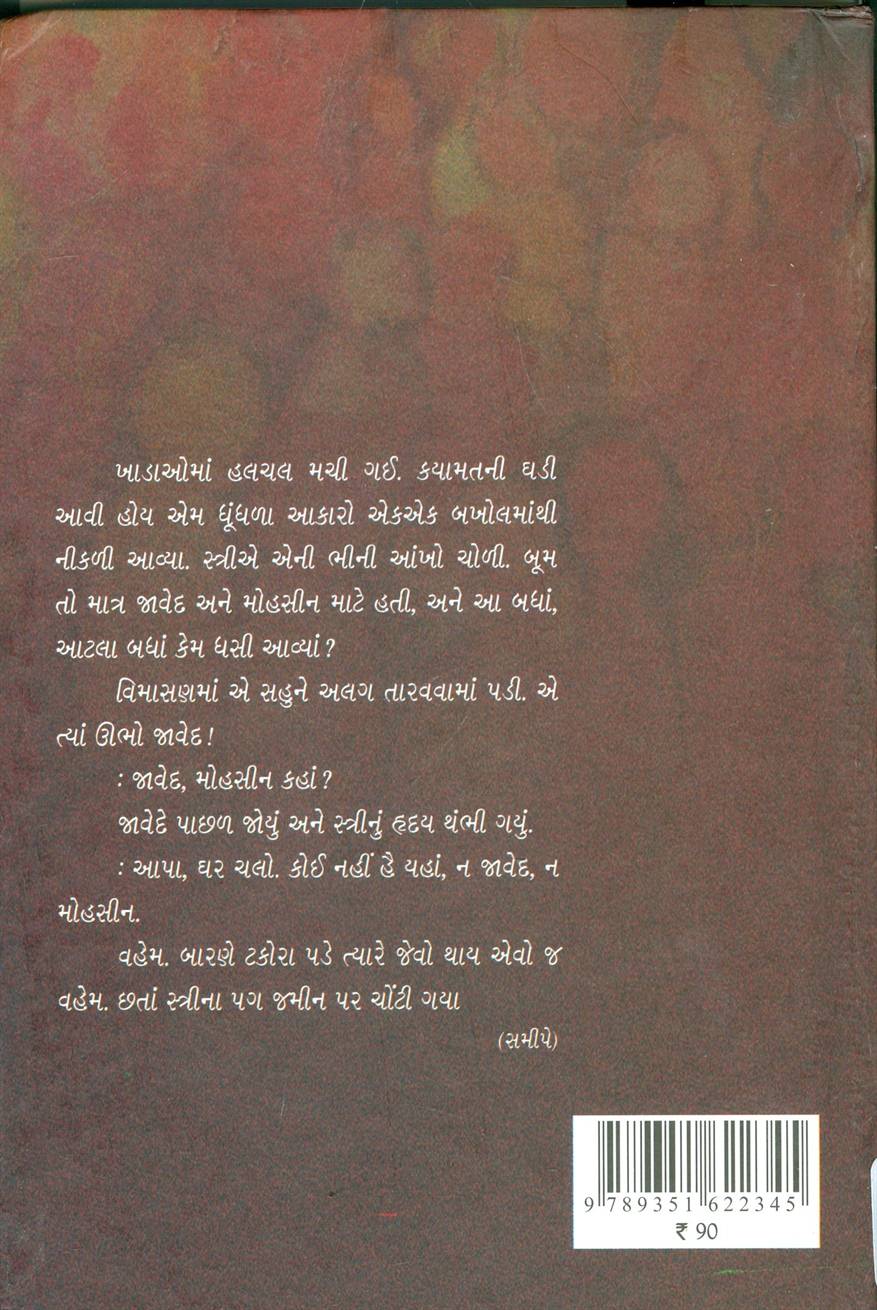 ખાડાઓમાં હલચલ મચી ગઈ. કયામતની ઘડી
આવી હોય એમ ધૂંધળા આકારો એકએક બખોલમાંથી
નીકળી આવ્યા. સ્ત્રીએ એની ભીની આંખો ચોળી. બૂમ
તો માત્ર જાવેદ અને મોહસીન માટે હતી, અને આ બધાં,
આટલા બધાં કેમ ધસી આવ્યાં?
વિમાસણમાં એ સહુને અલગ તારવવામાં પડી. એ
ત્યાં ઊભો જાવેદ!
: જાવેદ, મોહસીન કહાં?
જાવેદે પાછળ જોયું અને સ્ત્રીનું હૃદય થંભી ગયું.
: આપા, ઘર ચલો. કોઈ નહીં હૈ યહાં, ન જાવેદ, ન
મોહસીન.
વહેમ. બારણે ટકોરા પડે ત્યારે જેવો થાય એવો જ
વહેમ. છતાં સ્ત્રીના પગ જમીન પર ચોંટી ગયા
(સમીપે)
9 789351 622345
₹ 90